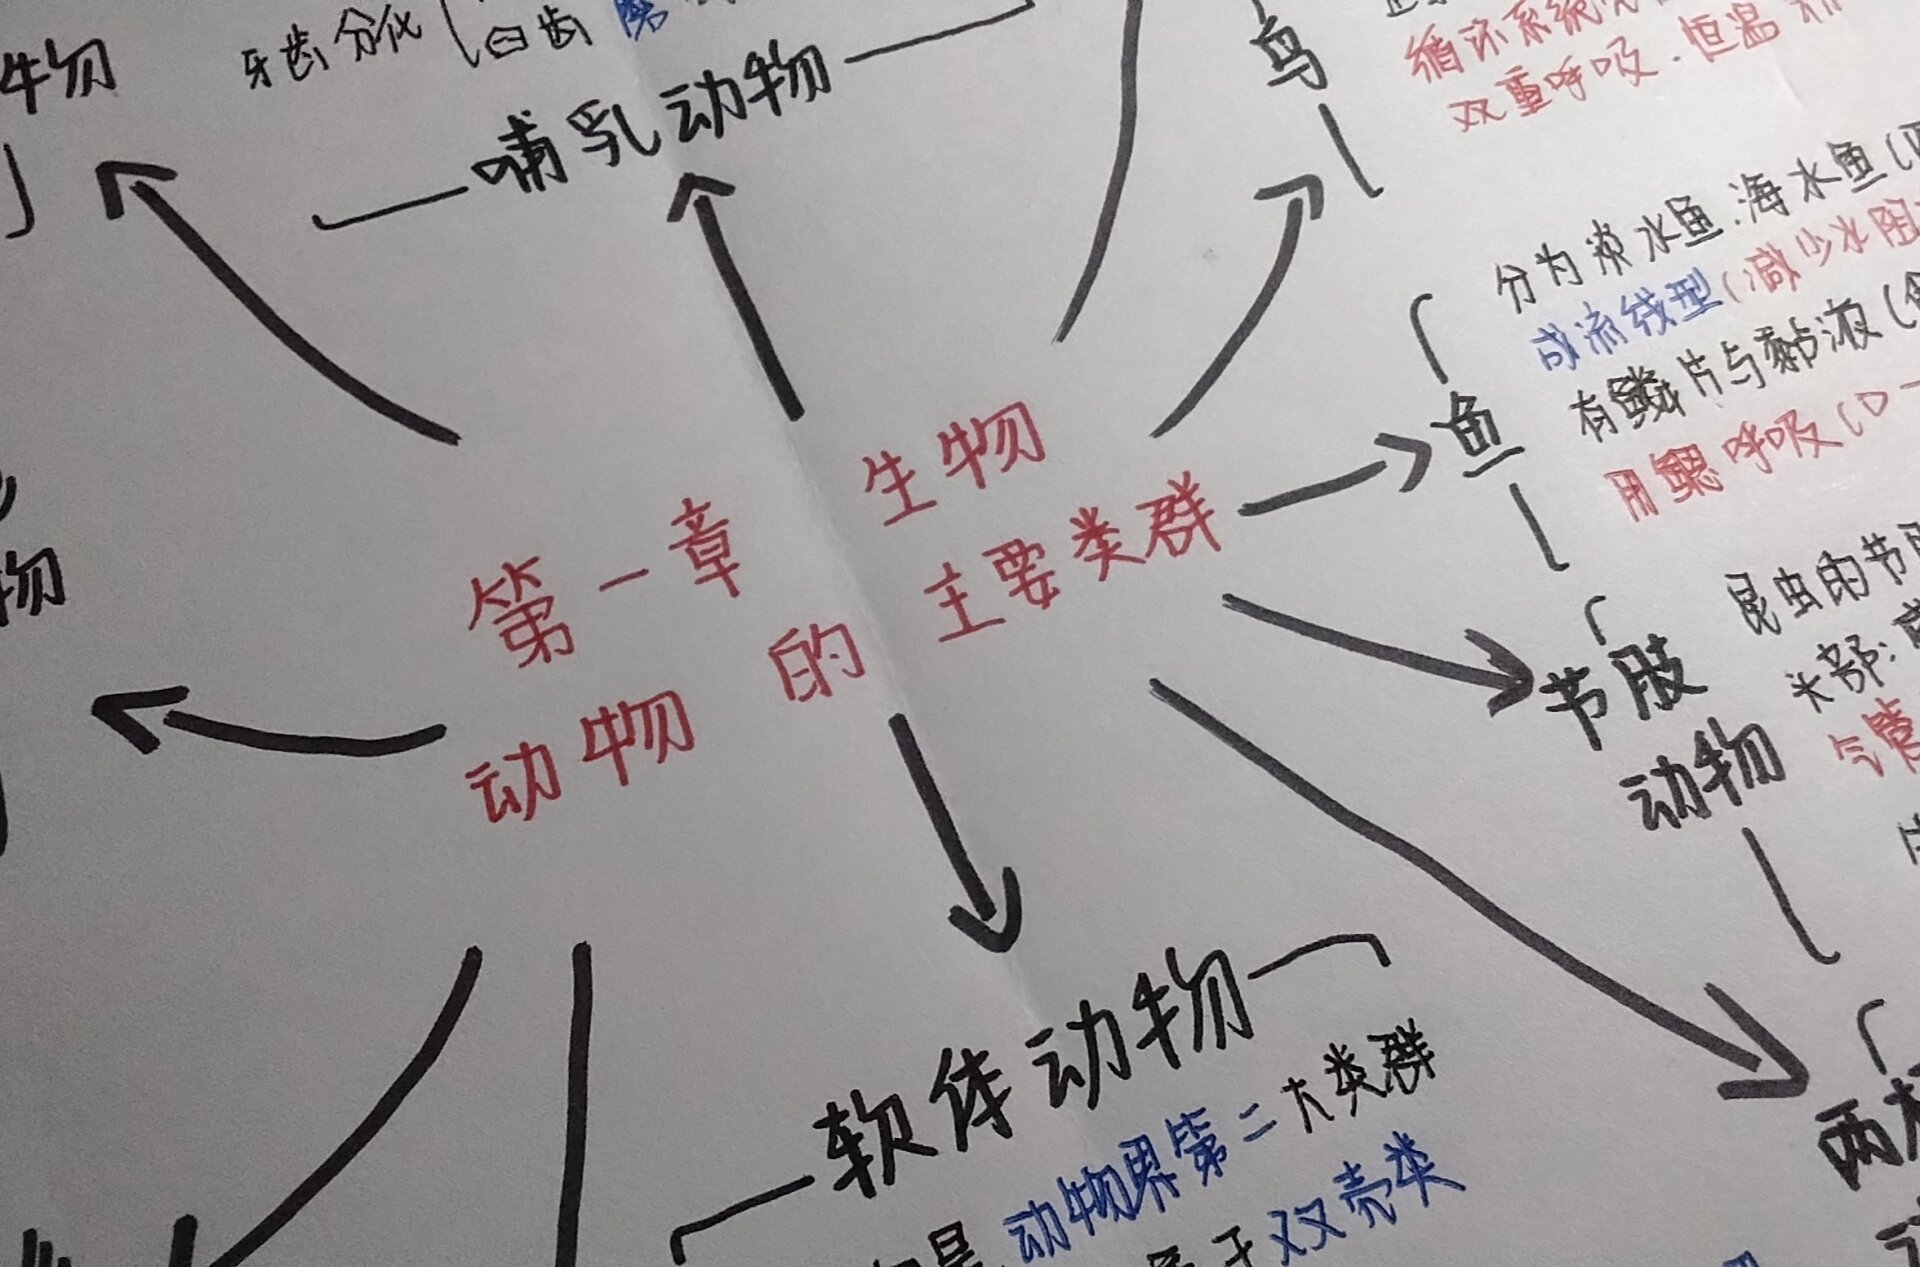 牙齿分化
臼齿 磨
哺乳动物
鸟
循环系统
双重呼吸.恒温
分为淡水鱼.海水鱼(
成流线型(减少水阻
有鳞片与黏液(
用鳃呼吸(口
鱼
第一章 生物
动物 的 主要类群
昆虫的节肢
头部:感
气管
节肢
动物
软体动物
动物界第二大类群
属于双壳类
两栖
动物
物
物